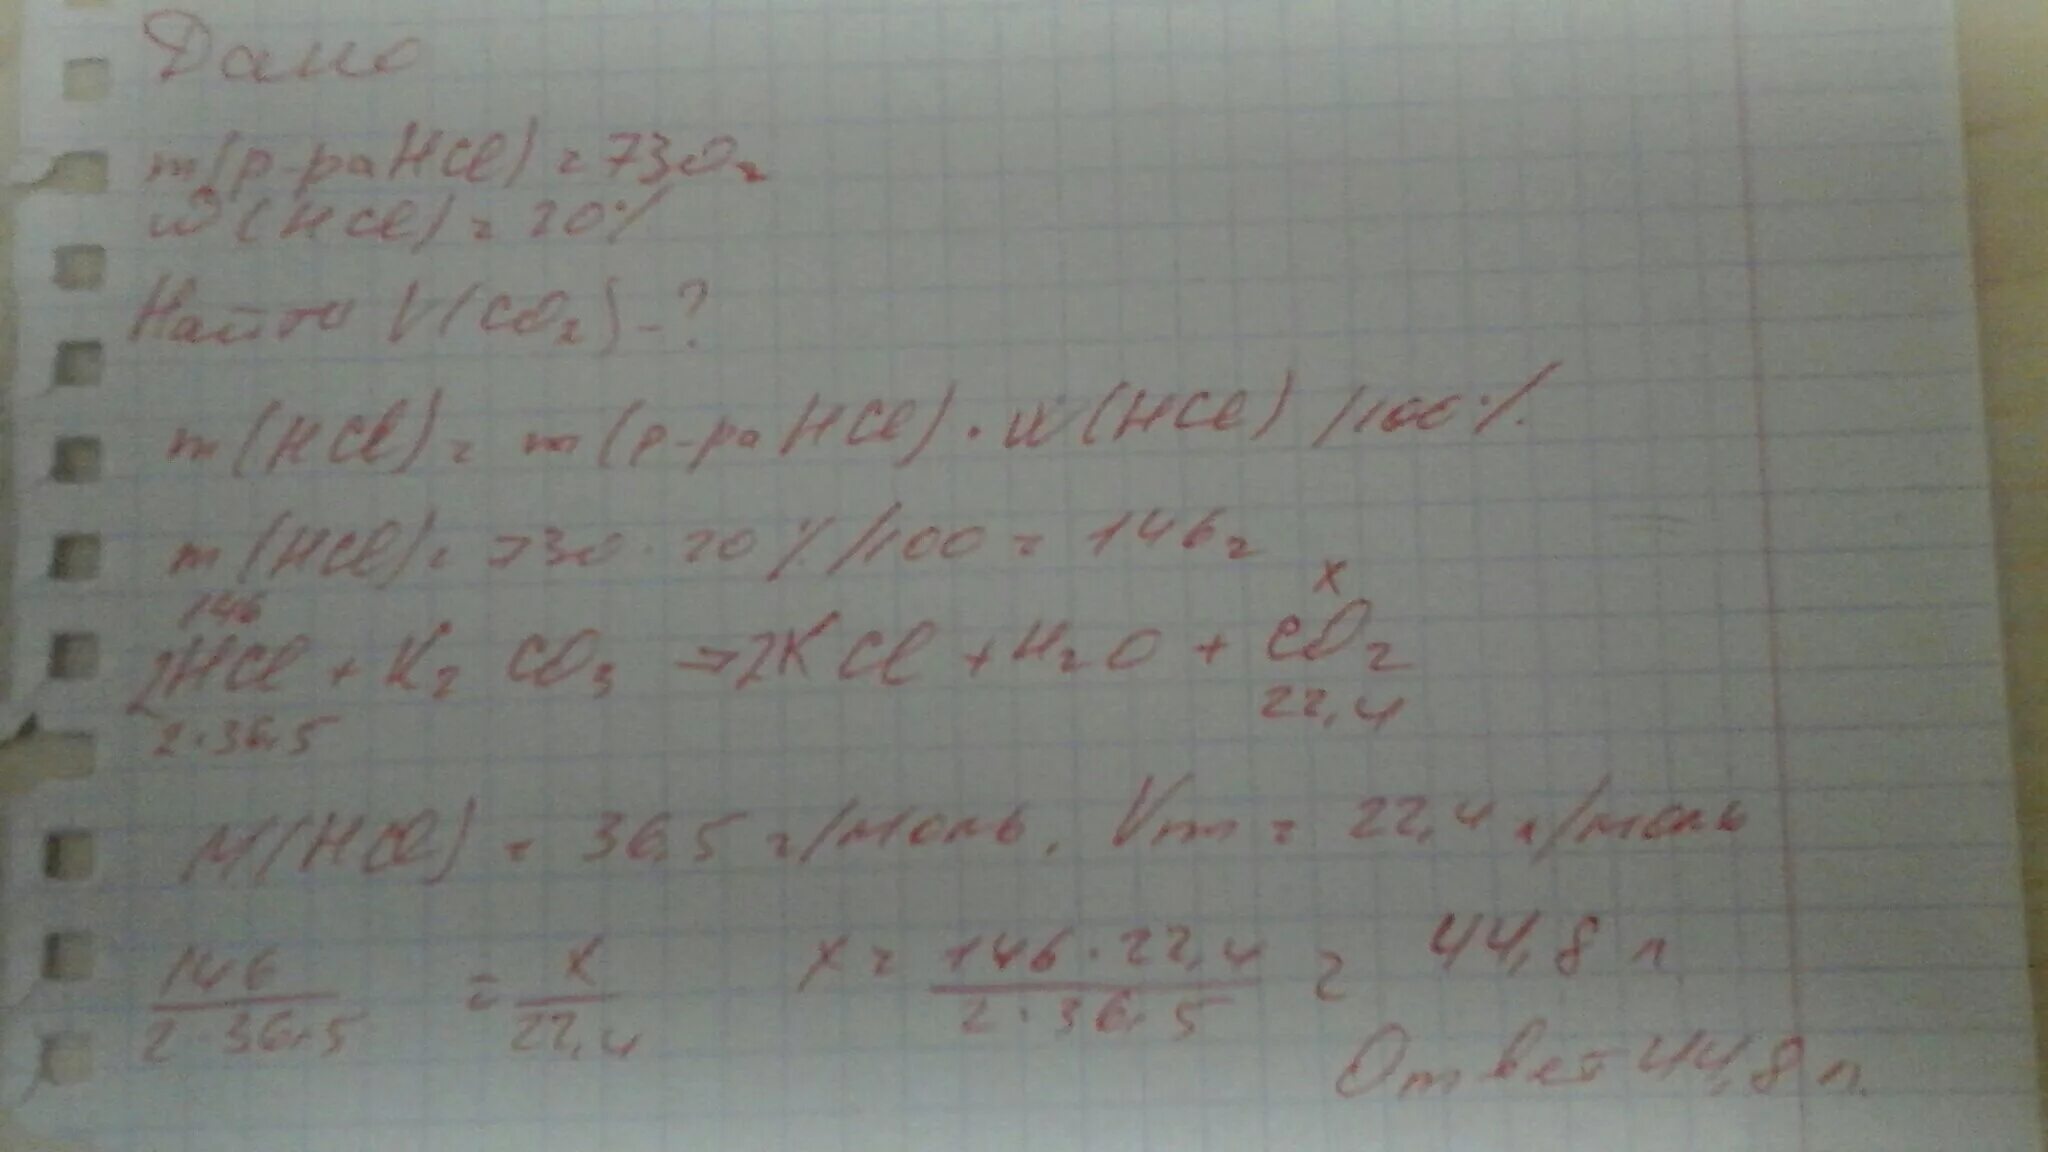 Дано
m(р-ра HCl) = 730г
w(HCl) = 20%
Найти V(CO2) - ?
m(HCl) = m(р-ра HCl) · w(HCl) /100%.
m(HCl) = 730 · 20% /100 = 146г
146 x
2HCl + K2CO3 → 2KCl + H2O + CO2
2·36,5 22,4
M(HCl) = 36,5 г/моль, Vm = 22,4 л/моль
146/2·36,5 = x/22,4 x = 146·22,4/2·36,5 = 44,8 л
Ответ 44,8 л.